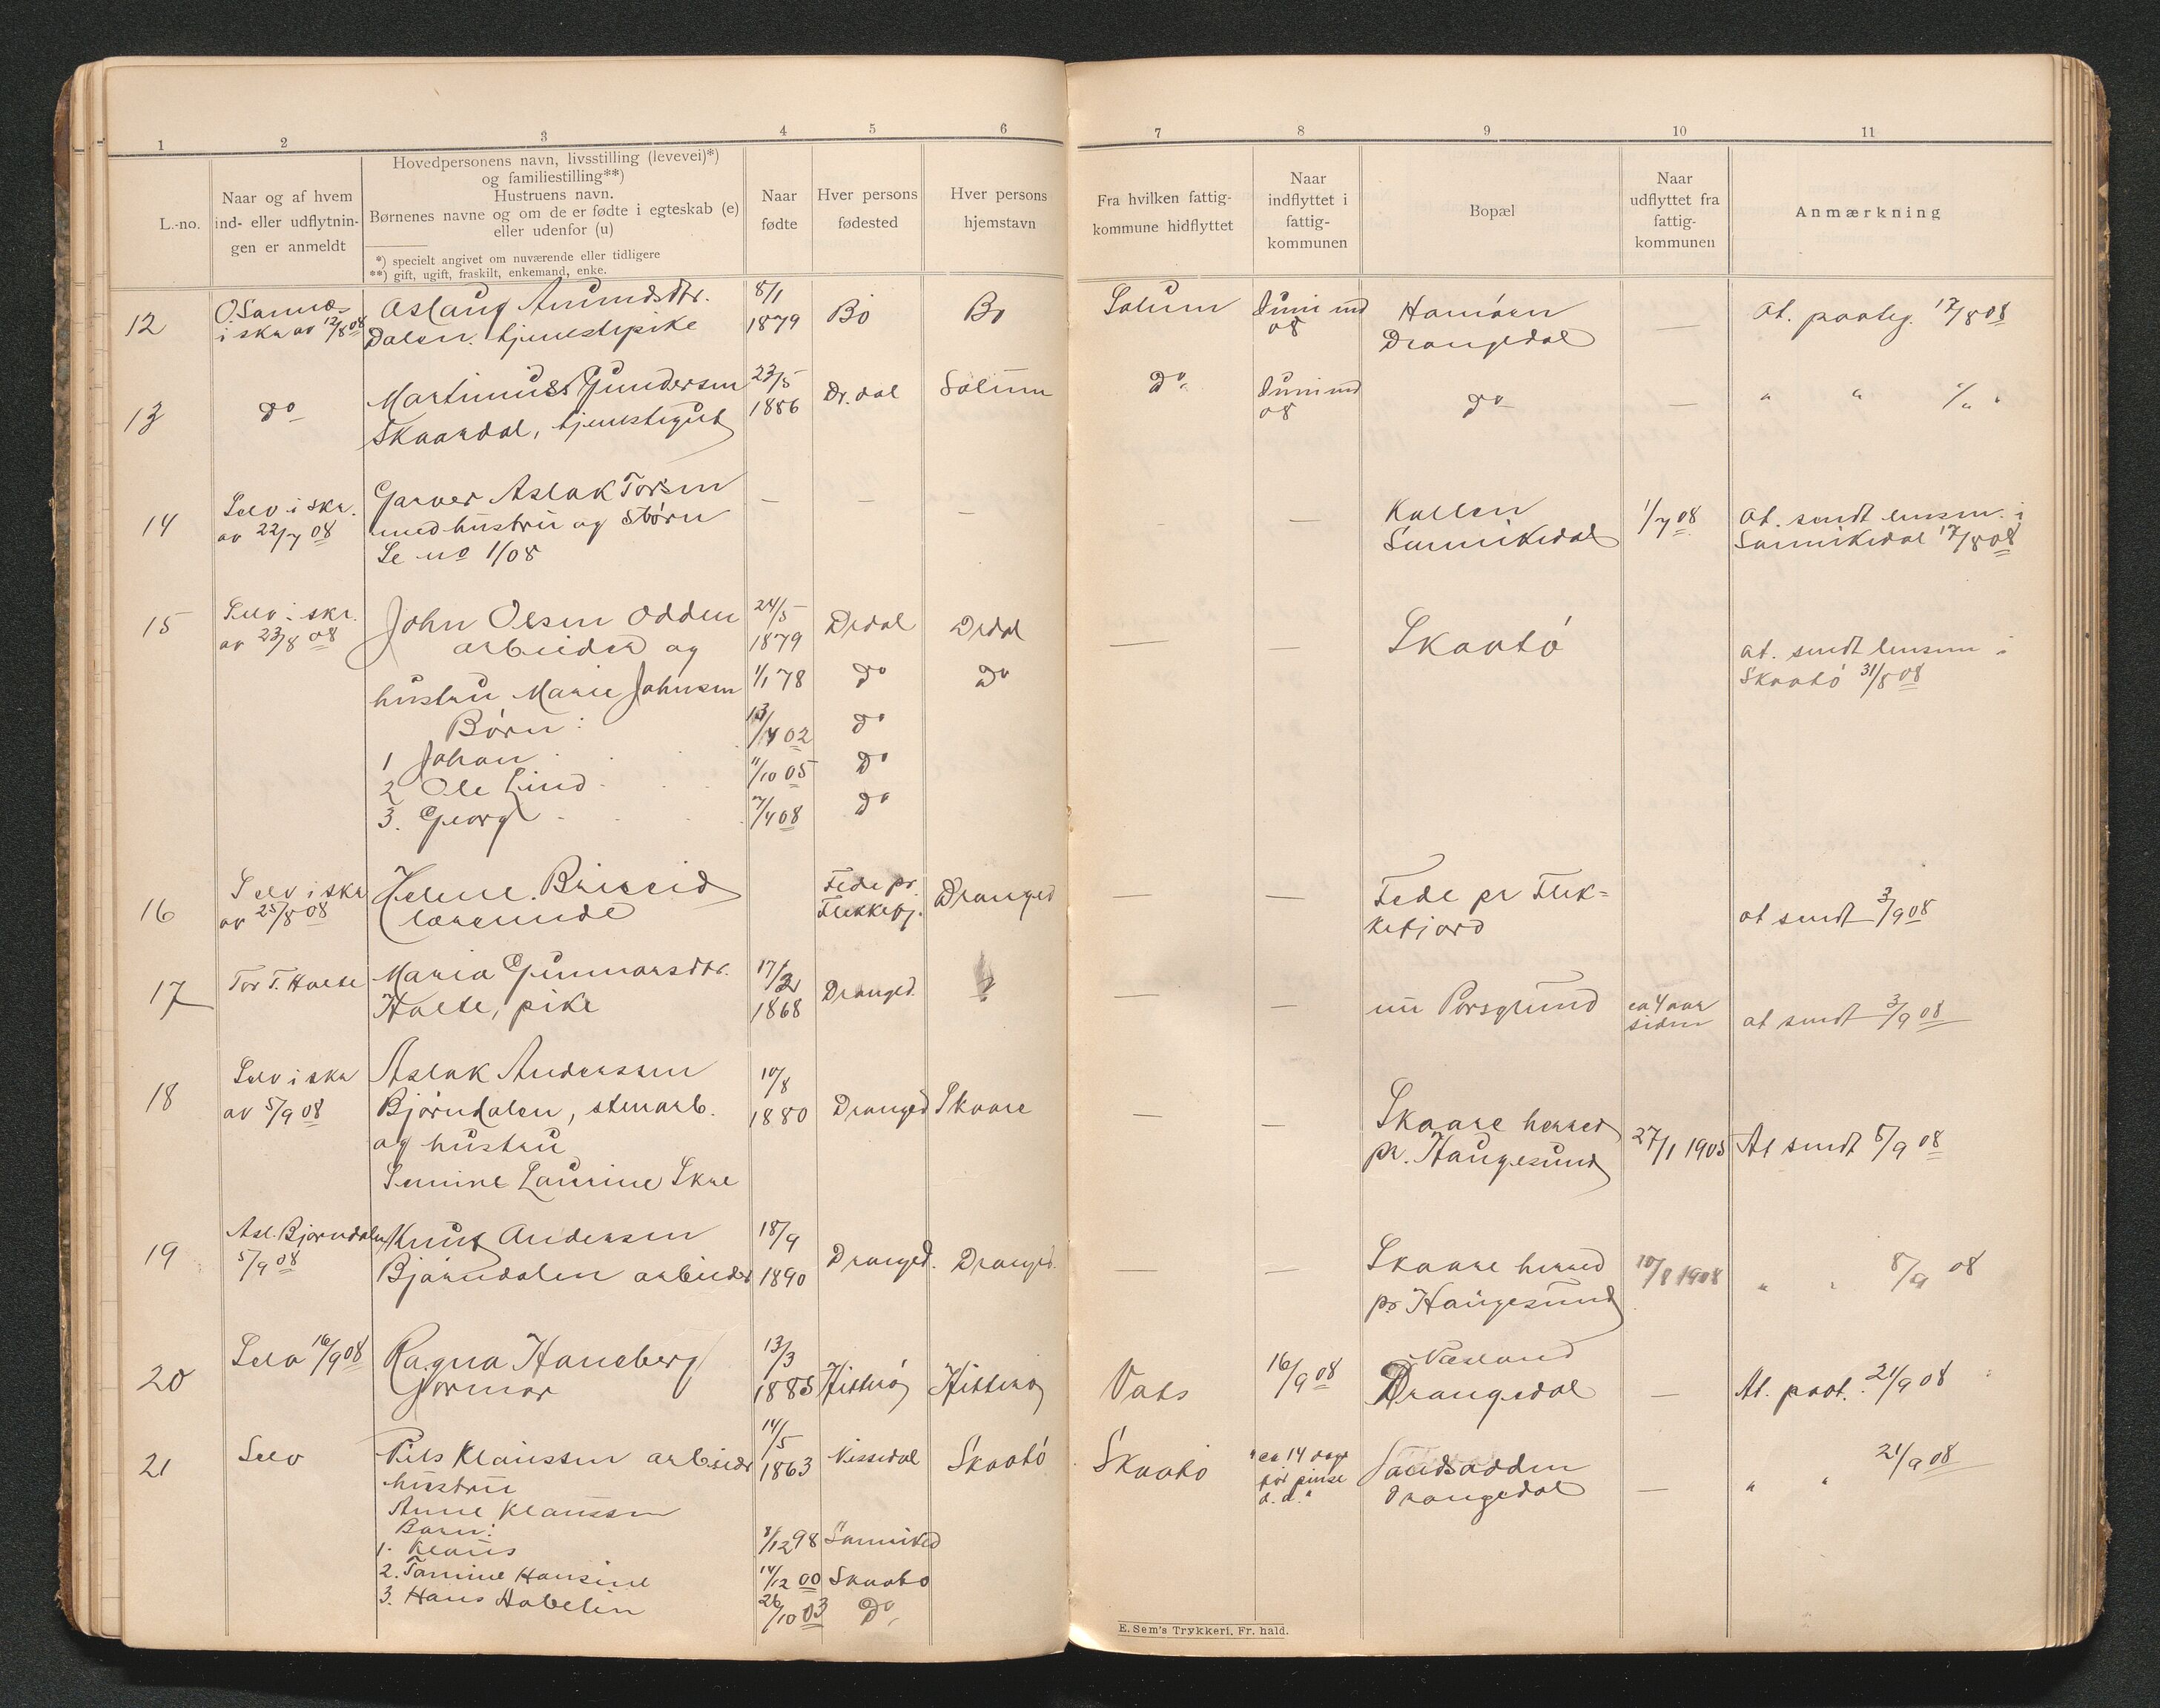 1 2 3 4 5 6 7 8 9 10 11
L.-no.
Naar og af hvem
ind- eller udflytnin-
gen er anmeldt
Hovedpersonens navn, livsstilling (levevei)*)
og familiestilling**)
Hustruens navn.
Børnenes navne og om de er fødte i egteskab (e)
eller udenfor (u)
*) specielt angivet om nuværende eller tidligere
**) gift, ugift, fraskilt, enkemand, enke.
Naar
fødte
Hver persons
fødested
Hver persons
hjemstavn
Fra hvilken fattig-
kommune hidflyttet
Naar
indflyttet i
fattig-
kommunen
Bopæl
Naar
udflyttet fra
fattig-
kommunen
Anmærkning
12
i skr av 12/8 08
Aslaug Amundsdtr.
Dalen. tjenestepike
8/1
1879
Bö
Bö
Solum
Juni md
08
Drangedal
—
At. paateg. 17/8 08
13
do
Martinus Gundersen
Skaardal, tjenestegut
23/5
1886
Dr.dal
Solum
do
Juni md
08
do
—
" " "/" "
14
Selv i skr.
av 22/7 08
Garver Aslak Torsen
med hustru og 5 børn
Se no 1/08
—
—
—
—
—
Sannikedal
1/7 08
At. sendt lensm. i
Sannikedal 17/8 08
15
Selv i skr.
av 23/8 08
John Olsen Odden
arbeider og
24/5
1879
Drdal
Drdal
—
—
Skaatö
at. sendt lensm i
Skaatö 31/8 08
hustru Marie Johnsen
1/1 78
do
do
Børn:
1 Johan
13/4 02
do
2 Ole Lind
11/10 05
do
3. Georg
7/4 08
do
16
Selv i skr
av 25/8 08
Helene Briseid
lærerinde
Fede pr.
Flekkefj.
Dranged
—
—
Fede pr Flek-
kefjord
at sendt 3/9 08
17
Tor T. Holte
Maria Gunnarsdtr.
Holte, pike
17/2
1868
Dranged.
?
—
—
nu Porsgrund
ca 4 aar
siden
at sendt 3/9 08
18
Selv i skr
av 5/9 08
Aslak Anderssen
Bjørndalen, stenarb.
og hustru
Semine Laurine Skre
10/8
1880
Dranged
Skaare
—
—
Skaare herred
pr. Haugesund
27/1 1905
At sendt 8/9 08
19
Asl. Bjørndalen
5/9 08
Knut Andersen
Bjørndalen arbeider
18/9
1890
Dranged.
Dranged.
—
—
Skaare herred
pr Haugesund
10/8 1908
" " 8/9 08
20
Selv 16/9 08
Ragna Haneberg
Jormor
13/3
1885
Hitterø
Hitterø
Vats
16/9 08
Næsland
Drangedal
—
At. paat. 21/9 08
21
Selv
Nils Klaussen arbeider
14/5
1863
Nissedal
Skaatö
Skaatö
"ca 14 dage
før pinse
d. a."
Drangedal
—
" " 21/9 08
hustru
Anne Klaussen
Barn:
1. Klaus
8/12 98
Sanniked
2. Tomine Hansine
14/12 00
Skaatö
3. Hans Abelin
26/10 03
do
E. Sem's Trykkeri, Fr. hald.